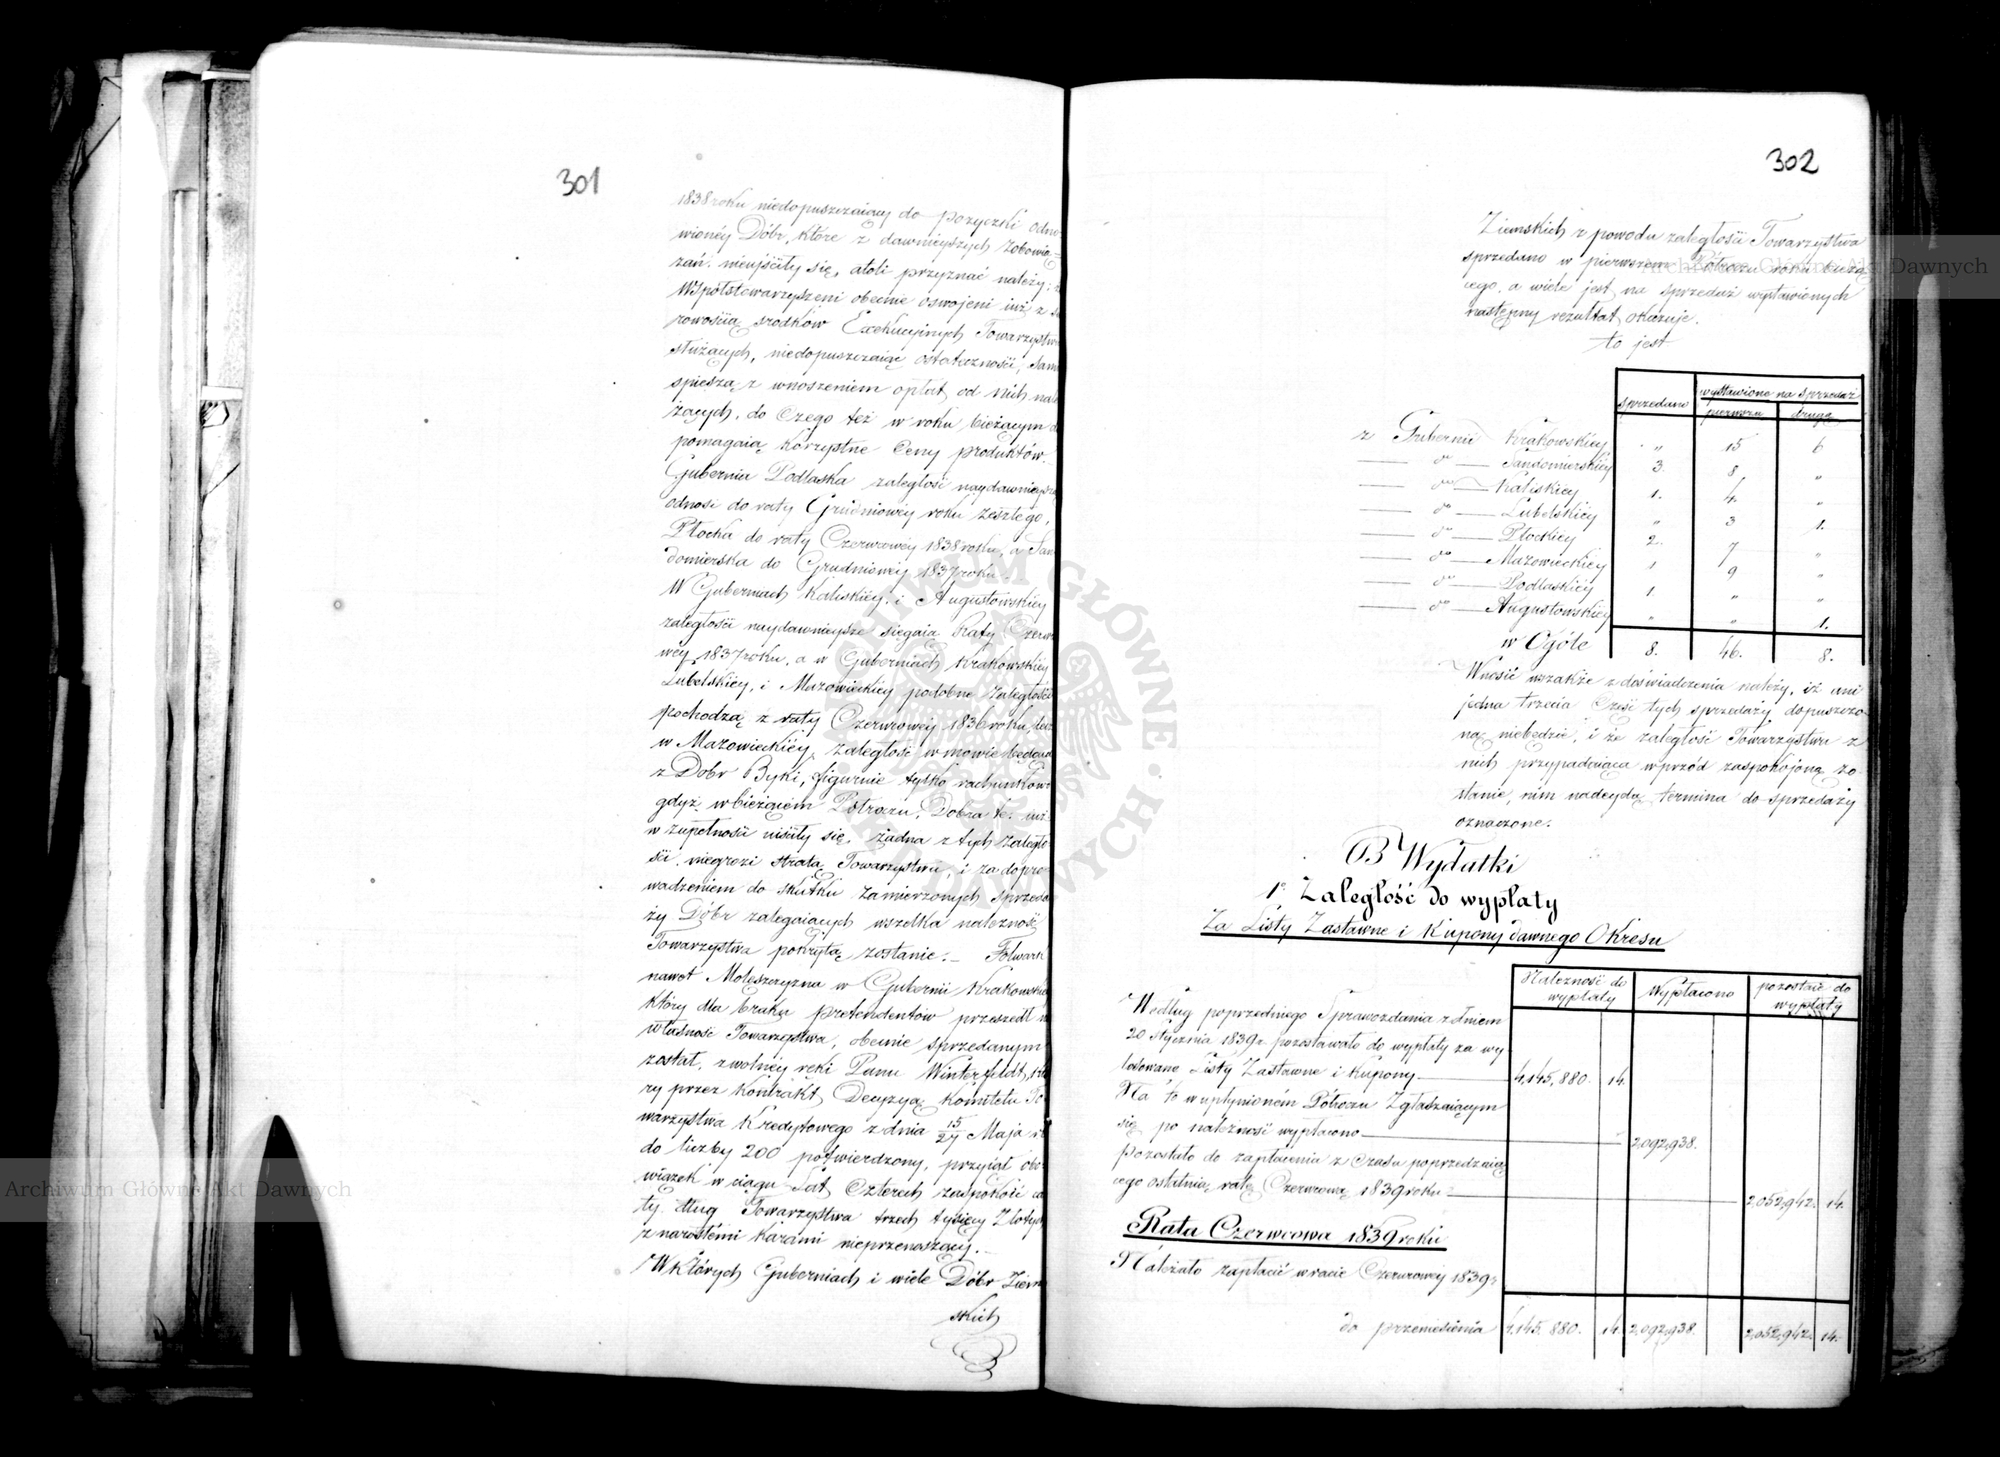 301
1838 roku niedopuszczaiący do pożyczki odno-
wionéy Dóbr, które z dawnieyszych zobowią-
zań nieuiściły się, atoli przyznać należy:
Współstowarzyszeni obecnie oswojeni już z su-
rowością srodków Exekucyjnych Towarzystwu
służących, niedopuszczaiąc ostateczności, sami
spieszą z wnoszeniem opłat od nich nale-
żących, do czego też w roku bieżącym do
pomagaią korzystne Ceny produktów.
Gubernia Podlaska zaległość naydawnieyszą
odnosi do raty Grudniowey roku zeszłego,
Płocka do raty Czerwcowéy 1838 roku, a San-
domierska do Grudniowey 1837 roku.
W Guberniach Kaliskiéy, i Augustowskiéy
zaległości naydawnieysze sięgaią Raty Czerwco
wéy 1837 roku, a w Guberniach Krakowskiéy
Lubelskiéy, i Mazowieckiéy podobne zaległości
pochodzą z raty Czerwcowéy 1836 roku, lecz
w Mazowieckiéy, zaległość w mowie będąca
z Dóbr Byki, figuruie tylko rachunkowo
gdyż w bieżącem Półroczu, Dobra te iuż
w zupełności uiściły się. Żadna z tych zaległo-
ści, niegrozi stratą Towarzystwu, i za dopro-
wadzeniem do skutku zamierzonych sprzeda
ży Dóbr zalegaiących wszelka należność
Towarzystwa pokrytą zostanie. — Folwark
nawet Moleszczyzna w Gubernii Krakowskiéy
który dla braku pretendentów przeszedł na
własność Towarzystwa, obecnie sprzedanym
został, z wolnéy ręki Panu Winterfeldt, któ
ry przez Kontrakt Decyzyą Komitetu To
warzystwa Kredytowego z dnia 15/27 Maja r b
do liczby 200 potwierdzony, przyiął obo-
wiązek w ciągu Lat Czterech zaspokoić ca
ły dług Towarzystwa trzech tysięcy Złotych
z narosłemi karami nieprzenoszący. —
W których Guberniach i wiele Dóbr Ziem
skich
302
Ziemskich z powodu zaległości Towarzystwa
sprzedano w pierwszem Półroczu roku bieżą
cego, a wiele jest na sprzedaż wystawionych
następny rezultat okazuje.
to jest
sprzedano wystawione na sprzedaż
pierwszą drugą
z Gubernii Krakowskiéy „ 15 6
— do — Sandomierskiéy 3. 8 „
— do — Kaliskiey 1. 4. „
— do — Lubelskiéy „ 3 1.
— do — Płockiéy 2. 7 „
— do — Mazowieckiéy 1 9 „
— do — Podlaskiéy 1. „ „
— do — Augustowskiéy „ „ 1.
w Ogóle 8. 46. 8.
Wnosić wszakże z doświadczenia należy, iż ani
jedna trzecia Część tych sprzedaży dopuszczo-
ną niebędzie, i że zaległość Towarzystwu z
nich przypadaiąca wprzód zaspokojoną zo-
stanie, nim nadeydą termina do sprzedaży
oznaczone.
B Wydatki
1o Zaległość do wypłaty
Za Listy Zastawne i Kupony dawnego Okresu
Należność do wypłaty Wypłacono pozostaie do wypłaty
Według poprzedniego Sprawozdania z dniem
20 Stycznia 1839 r. pozostawało do wypłaty za wy
losowane Listy Zastawne i Kupony — 4,145,880. 14.
Na to w upłynionem Półroczu Zgłaszaiącym
się po należność wypłacono — 2,092,938.
Pozostało do zapłacenia z czasu poprzedzaią
cego ostatnią ratę Czerwcową 1839 roku — 2,052,942. 14.
Rata Czerwcowa 1839 roku
Należało zapłacić w racie Czerwcowéy 1839 r.
do przeniesienia 4,145,880. 14. 2,092,938. 2,052,942. 14.
Archiwum Główne Akt Dawnych
Archiwum Główne Akt Dawnych
ARCHIWUM GŁÓWNE AKT DAWNYCH